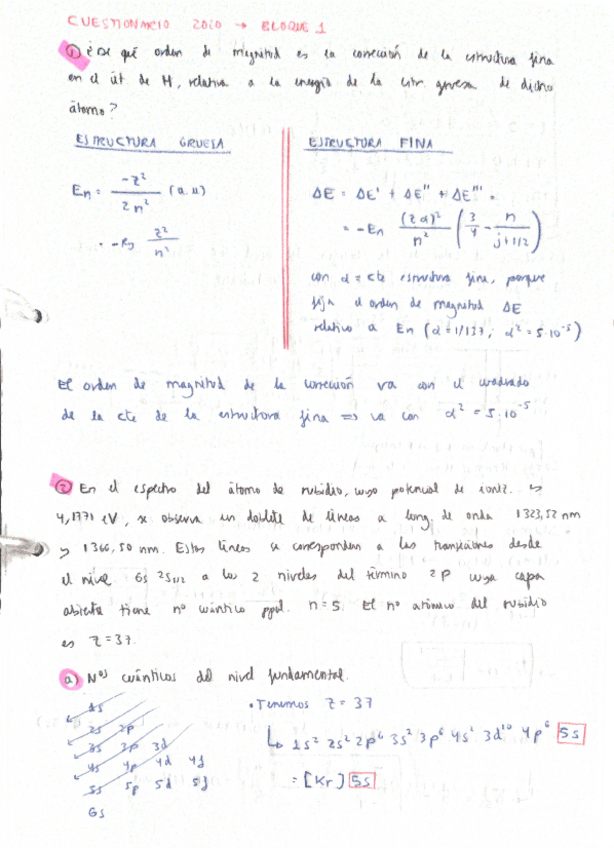 CUESTIONARIO 2020 → BLOQUE 1
① ¿De qué orden de magnitud es la corrección de la estructura fina
en el át. de H, relativa a la energía de la estr. gruesa de dicho
átomo?
ESTRUCTURA GRUESA
En = -Z² / 2n² (a.u)
= -Ry Z² / n²
ESTRUCTURA FINA
ΔE = ΔE' + ΔE'' + ΔE''' =
= -En (Zα)² / n² (3/4 - n / j+1/2)
con α = cte estructura fina, porque
fija el orden de magnitud ΔE
relativo a En (α=1/137, α² = 5·10⁻⁵)
El orden de magnitud de la corrección va con el cuadrado
de la cte de la estructura fina ⇒ va con α² = 5·10⁻⁵
② En el espectro del átomo de rubidio, cuyo potencial de ioniz. es
4,1771 eV, se observa un doblete de líneas a long. de onda 1323,52 nm
y 1366,50 nm. Estas líneas se corresponden a las transiciones desde
el nivel 6s 2S1/2 a los 2 niveles del término 2P cuya capa
abierta tiene nº cuántico ppal. n=5. El nº atómico del rubidio
es Z=37.
a) Nos cuánticos del nivel fundamental.
1s
2s 2p
3s 3p 3d
4s 4p 4d 4f
5s 5p 5d 5f
6s
• Tenemos Z = 37
↳ 1s² 2s² 2p⁶ 3s² 3p⁶ 4s² 3d¹⁰ 4p⁶ 5s
= [Kr] 5s